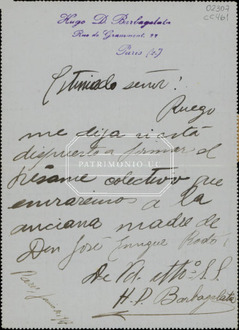 02307
Hugo D. Barbagelata
Rue de Grammont
Paris
Estimado señor:
Ruego
me diga si está
dispuesto a firmar el
pésame colectivo que
enviaremos a la
anciana madre de
Don José Enrique Rodó.
De Vd.
H. D. Barbagelata
PATRIMONIO UC